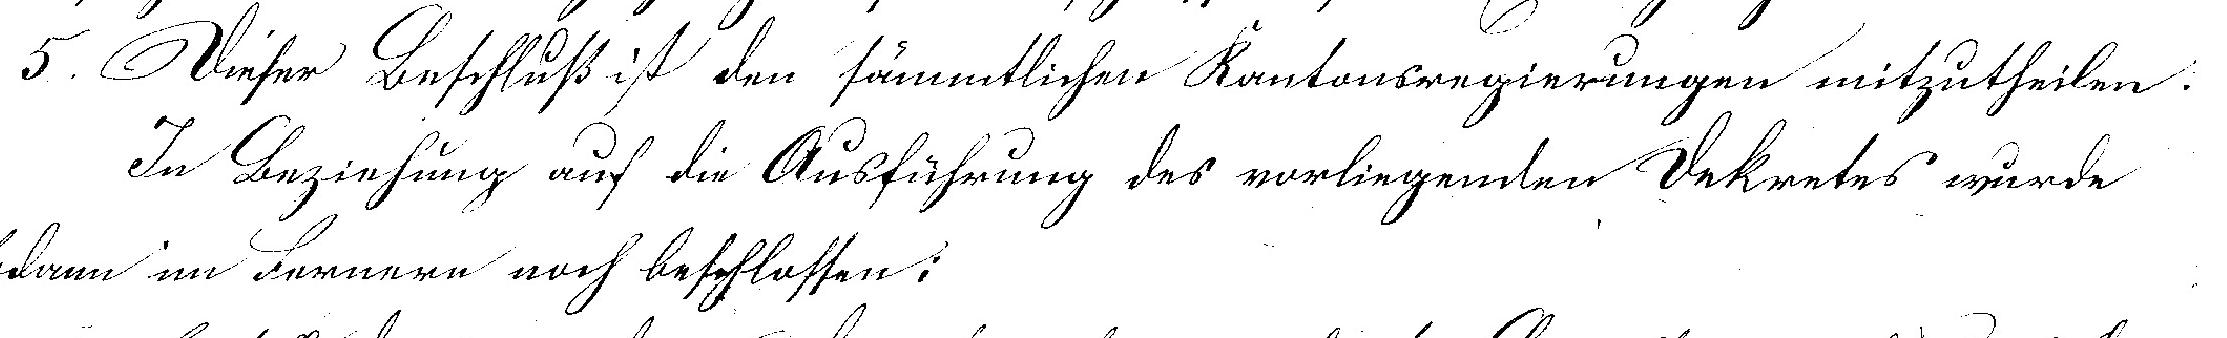 5. Dieser Beschluß ist den sämmtlichen Kantonsregierungen mitzutheilen.
In Beziehung auf die Ausführung des vorliegenden Dekretes wurde
dann im Fernern noch beschlossen: